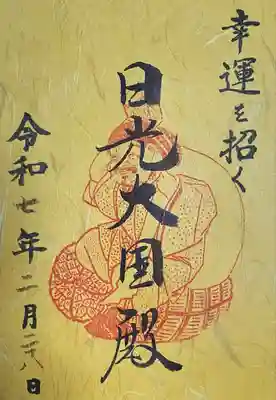 幸運を招く
日光大国殿
令和七年二月二十八日